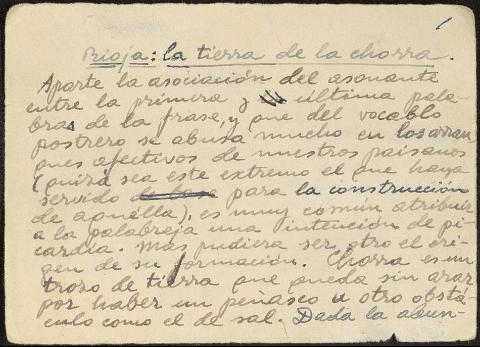 Rioja: la tierra de la chorra.
Aparte la asociación del asonante
entre la primera y última pala-
bras de la frase, y que del vocablo
postrero se abusa mucho en los arran
ques afectivos de nuestros paisanos
(quizá sea este extremo el que haya
servido de base para la construcción
de aquélla), es muy común atribuir
a la palabreja una intención de pi
cardía. Mas pudiera ser otro el ori-
gen de su formación. Chorra es un
trozo de tierra que queda sin arar
por haber un peñasco u otro obstá-
culo como el de sal. Dada la abun-